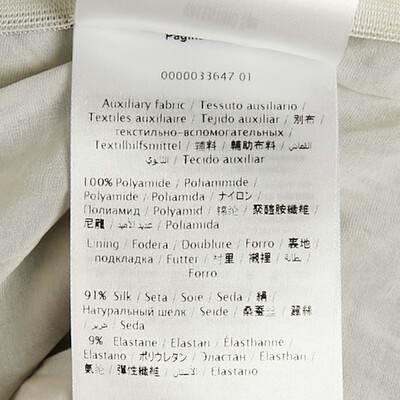 0000033647 01
Auxiliary fabric / Tessuto ausiliario /
Textiles auxiliaire / Tejido auxiliar / 別布 /
текстильно-вспомогательных /
Textilhilfsmittel / 辅料 / 輔助布料 / القماش
الثانوي / Tecido auxiliar
100% Polyamide / Poliammide /
Polyamide / Poliamida / ナイロン /
Полиамид / Polyamid / 锦纶 / 聚醯胺纖維 /
尼龍 / عديد الأميد / Poliamida
Lining / Fodera / Doublure / Forro / 裏地 /
подкладка / Futter / 衬里 / 襯裡 / بطانة /
Forro
91% Silk / Seta / Soie / Seda / 絹 /
Натуральный шелк / Seide / 桑蚕丝 / 蠶絲
/ حرير / Seda
9% Elastane / Elastan / Élasthanne /
Elastano / ポリウレタン / Эластан / Elasthan /
氨纶 / 彈性纖維 / الاستان / Elastano